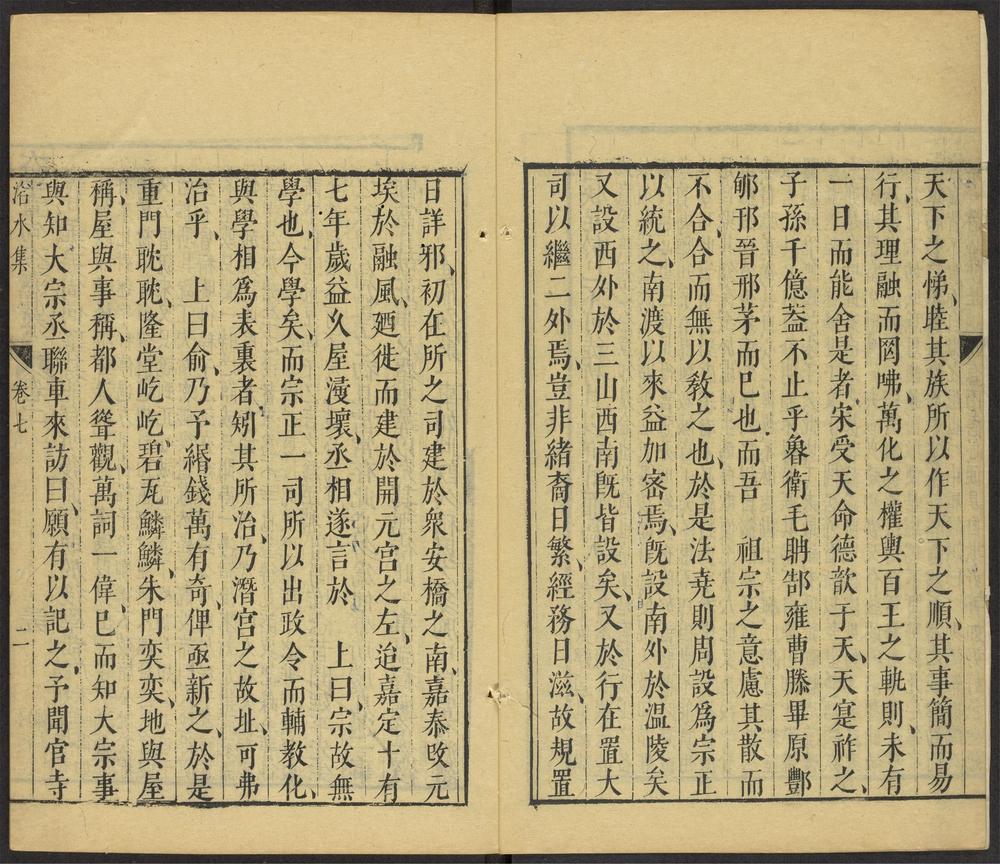 天下之悌、睦其族所以作天下之順、其事簡而易
行、其理融而罔咈、萬化之權輿百王之軌則、未有
一日而能舍是者、宋受天命德歆于天、天寔祚之、
子孫千億葢不止乎魯衛毛聃郜雍曹滕畢原酆
郇邘晉邢茅而巳也、而吾　祖宗之意慮其散而
不合、合而無以敎之也、於是法堯則周設爲宗正
以統之、南渡以來益加密焉、旣設南外於溫陵矣
又設西外於三山西南旣皆設矣、又於行在置大
司以繼二外焉、豈非緒裔日繁、經務日滋、故規置
日詳邪、初在所之司建於衆安橋之南、嘉泰攺元
埃於融風、廼徙而建於開元宫之左、迨嘉定十有
七年歲益久屋寖壞、丞相遂言於　上曰、宗故無
學也、今學矣、而宗正一司所以出政令而輔教化、
與學相爲表裏者、矧其所治、乃潛宫之故址、可弗
治乎、　上曰俞、乃予緡錢萬有奇、俾亟新之、於是
重門眈眈、隆堂屹屹、碧瓦鱗鱗、朱門奕奕、地與屋
稱、屋與事稱、都人聳觀、萬詞一偉、巳而知大宗事
與知大宗丞聯車來訪曰、願有以記之、予聞官寺
洺水集　卷七　二